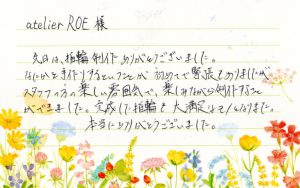 atelier ROE 様
先日は、指輪制作ありがとうございました。
なにかを手作りするということが初めてで緊張もありましたが
スタッフの方の楽しい雰囲気で、楽しみながら制作すること
ができました。完成した指輪も大満足な
本当にありがとうございました。